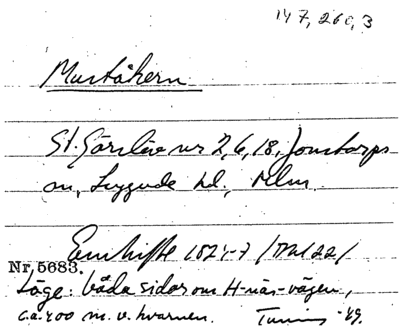 147, 260, 3
Muståkern
St. Görslöv nr 2, 6, 18, Jonstorps
sn, Luggude hd., Mlm.
Enskifte 1824-7 /
Nr, 5683.
Läge: båda sidor om H-näs-vägen,
c:a 400 m. v. kvarnen. -49.